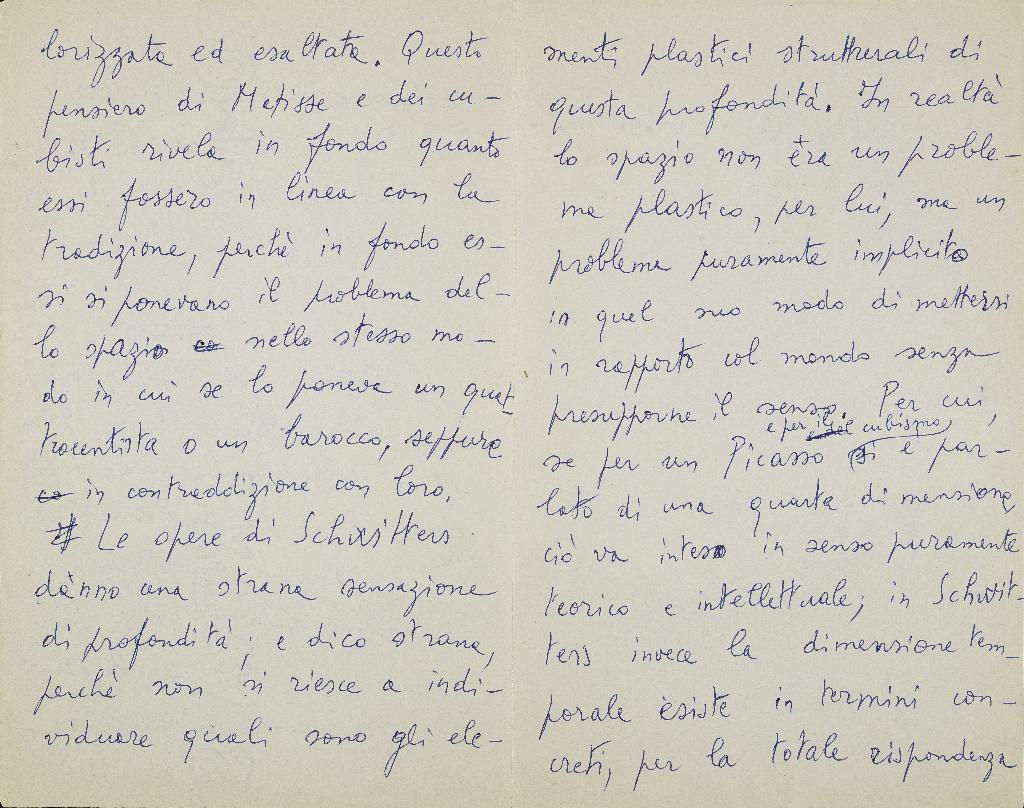 lorizzata ed esaltata. Questo
pensiero di Matisse e dei cu-
bisti rivela in fondo quanto
essi fossero in linea con la
tradizione, perchè in fondo es-
si si ponevano il problema del-
lo spazio co nello stesso mo-
do in cui se lo poneva un quat
trocentista o un barocco, seppure
co in contraddizione con loro.
Le opere di Schwitters
dànno una strana sensazione
di profondità; e dico strana,
perchè non si riesce a indi-
viduare quali sono gli ele-
menti plastici strutturali di
questa profondità. In realtà
lo spazio non èra un proble-
ma plastico, per lui, ma un
problema puramente implicito
in quel suo modo di mettersi
in rapporto col mondo senza
presupporne il senso. Per cui,
e per il cubismo
se per un Picasso si è par-
lato di una quarta dimensione
ciò va inteso in senso puramente
teorico e intellettuale; in Schwit-
ters invece la dimensione tem-
porale èsiste in termini con-
creti, per la totale rispondenza